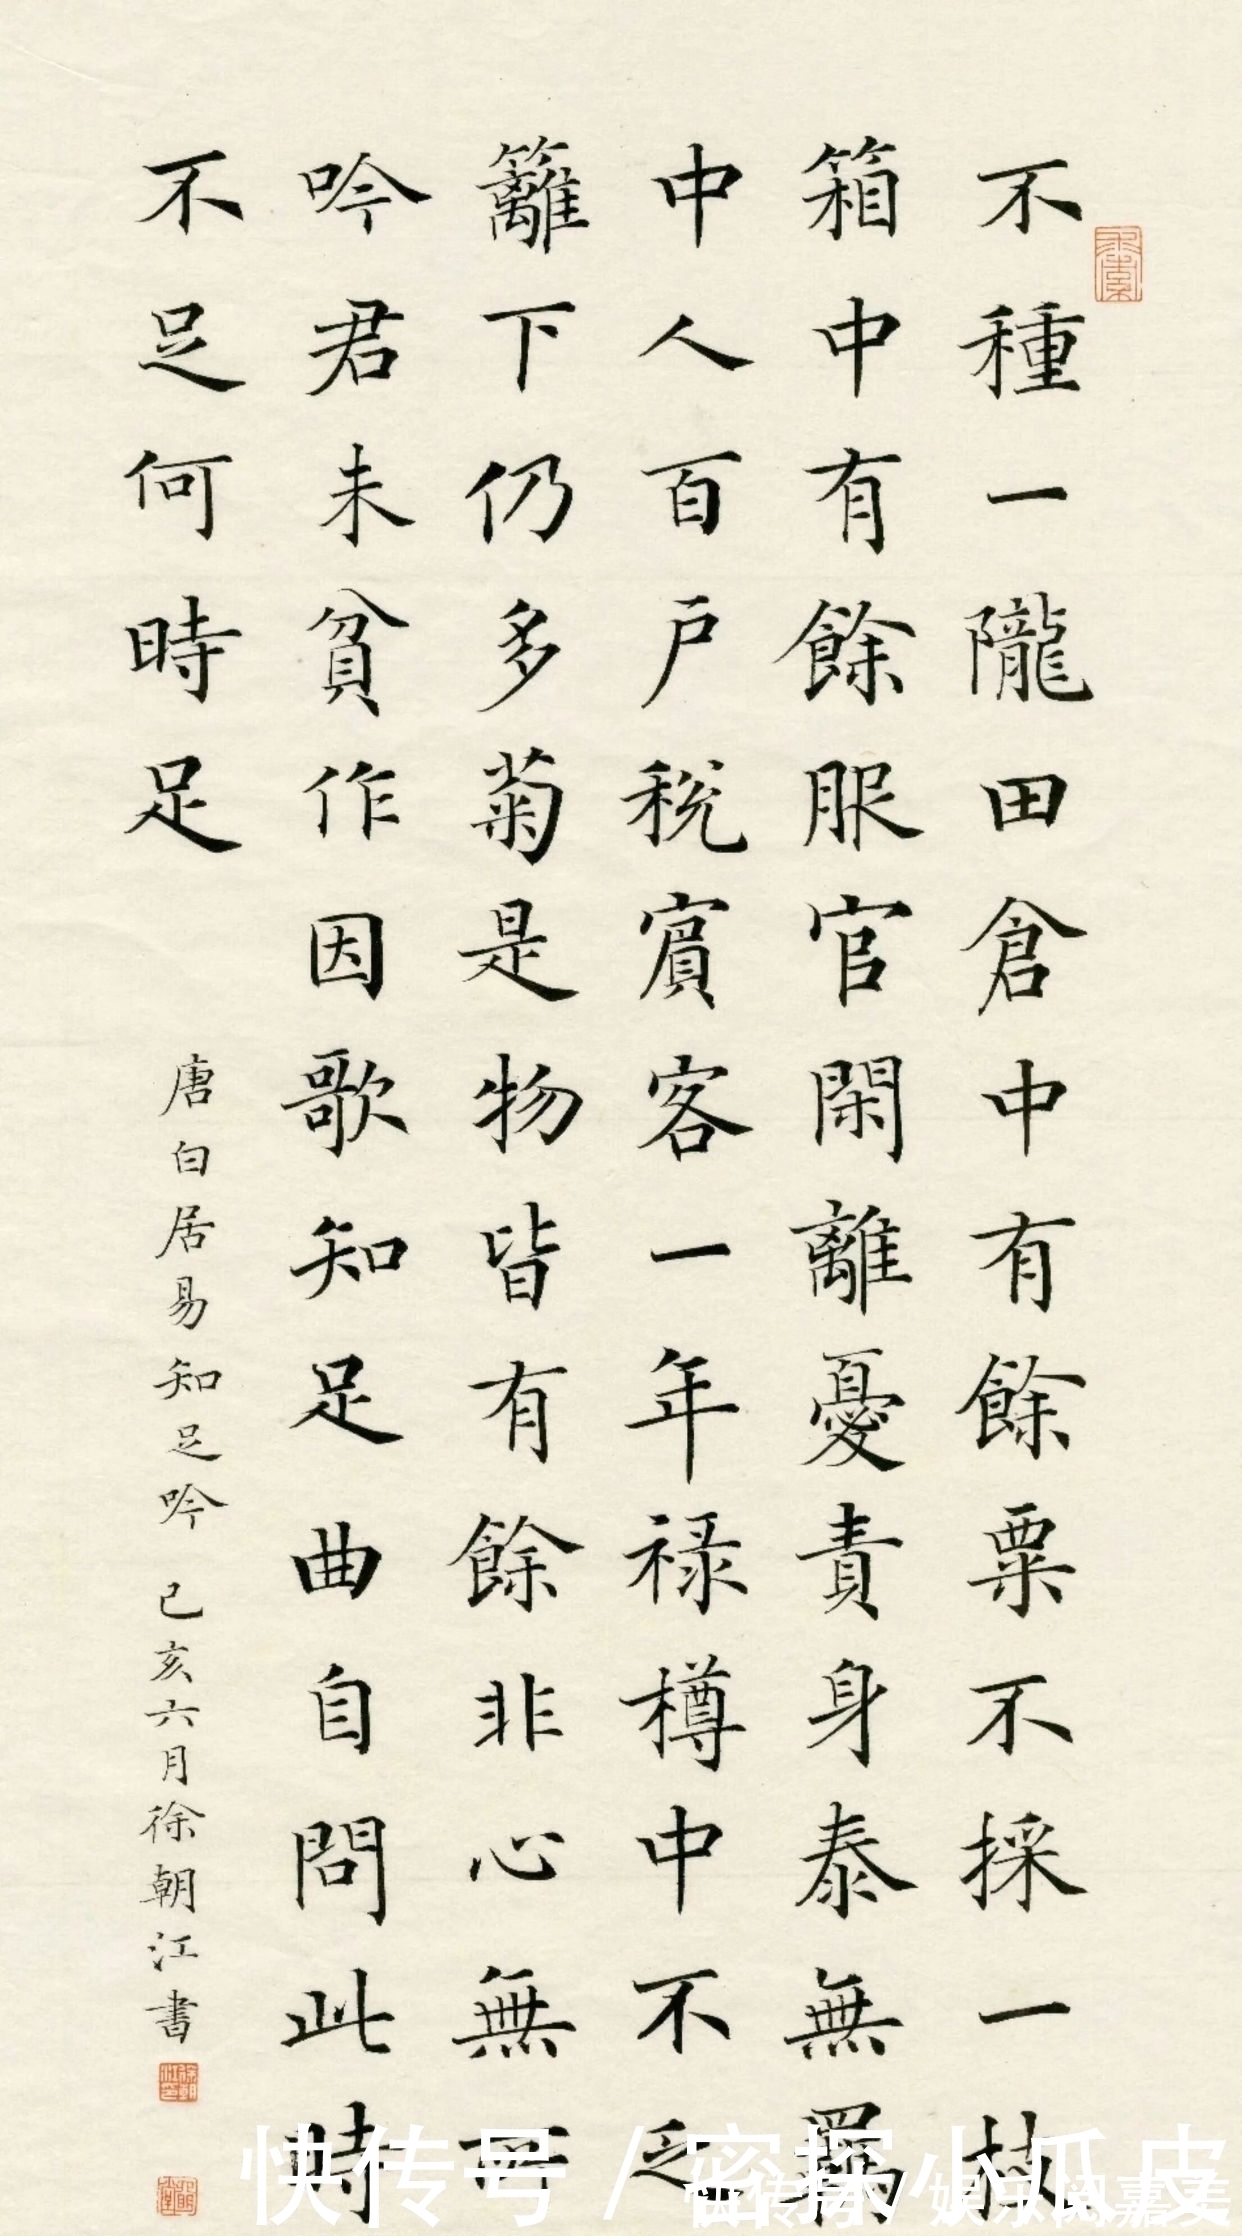 不種一隴田倉中有餘粟不採一枝
箱中有餘服官閑離憂責身泰無羈
中人百戶稅賓客一年祿樽中不乏
籬下仍多菊是物皆有餘非心無所
吟君未貧作因歌知足曲自問此時
不足何時足
唐白居易知足吟 己亥六月徐朝江書
快传号/密探小瓜皮